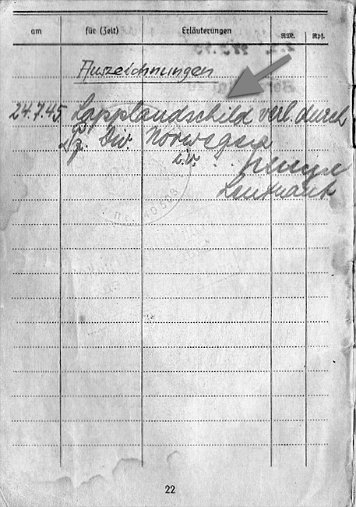 am für (Zeit) Erläuterungen RM. Rpf.
Auszeichnungen
24.7.45 Lapplandschild verl. durch
Dz. Div Norwegen
i.V.
Leutnant
22